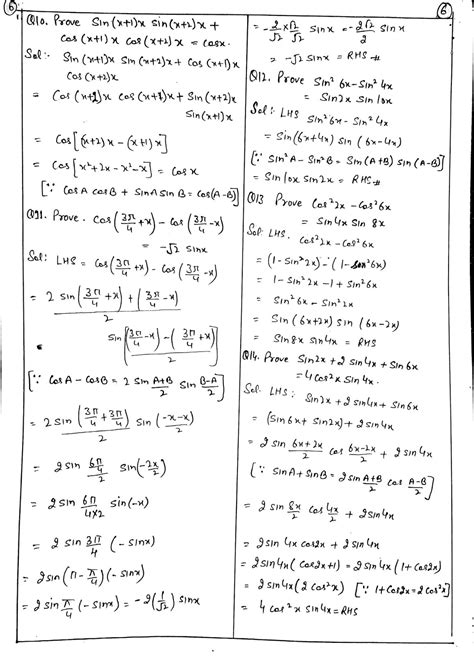 6
Q10. Prove Sin(x+1)x Sin(x+2)x +
Cos(x+1)x Cos(x+2)x = Cosx.
Sol:- Sin(x+1)x Sin(x+2)x + Cos(x+1)x
Cos(x+2)x
= Cos(x+2)x Cos(x+1)x + Sin(x+2)x
Sin(x+1)x
= Cos[(x+2)x - (x+1)x]
= Cos[x²+2x-x²-x] = Cosx
[∵ CosA CosB + SinA SinB = Cos(A-B)]
Q11. Prove. Cos(3π/4 + x) - Cos(3π/4 - x)
= -√2 Sinx
Sol: LHS = Cos(3π/4 + x) - Cos(3π/4 - x)
= 2 Sin (3π/4 + x) + (3π/4 - x) / 2
Sin (3π/4 - x) - (3π/4 + x) / 2
[∵ CosA - CosB = 2 Sin A+B/2 Sin B-A/2]
= 2 Sin (3π/4 + 3π/4)/2 Sin (-x-x)/2
= 2 Sin 6π/4/2 Sin(-2x/2)
= 2 Sin 6π/4×2 Sin(-x)
= 2 Sin 3π/4 (-Sinx)
= 2 Sin(π - π/4)(-Sinx)
= 2 Sin π/4 (-Sinx) = -2(1/√2) Sinx
6
= -2/√2 × √2/√2 Sinx = -2√2/2 Sinx
= -√2 Sinx = RHS #
Q12. Prove Sin² 6x - Sin² 4x
= Sin2x Sin10x
Sol: LHS Sin² 6x - Sin² 4x
= Sin(6x+4x) Sin(6x-4x)
[∵ Sin²A - Sin²B = Sin(A+B) Sin(A-B)]
= Sin10x Sin2x = RHS #
Q13 Prove Cos² 2x - Cos² 6x
= Sin4x Sin 8x
Sol. LHS. Cos² 2x - Cos² 6x
= (1 - Sin² 2x) - (1 - Sin² 6x)
= 1 - Sin² 2x - 1 + Sin² 6x
= Sin² 6x - Sin² 2x
= Sin(6x+2x) Sin(6x-2x)
= Sin8x Sin4x = RHS
Q14. Prove Sin2x + 2 Sin4x + Sin6x
= 4 Cos² x Sin4x.
Sol. LHS: Sin2x + 2 Sin4x + Sin6x
= (Sin6x + Sin2x) + 2 Sin4x
= 2 Sin 6x+2x/2 Cos 6x-2x/2 + 2 Sin4x
[∵ SinA + SinB = 2 Sin A+B/2 Cos A-B/2]
= 2 Sin 8x/2 Cos 4x/2 + 2 Sin4x
= 2 Sin 4x Cos2x + 2 Sin4x
= 2 Sin4x (Cos2x + 1) = 2 Sin4x (1 + Cos2x)
= 2 Sin4x (2 Cos² x) [∵ 1 + Cos2x = 2 Cos² x]
= 4 Cos² x Sin4x = RHS